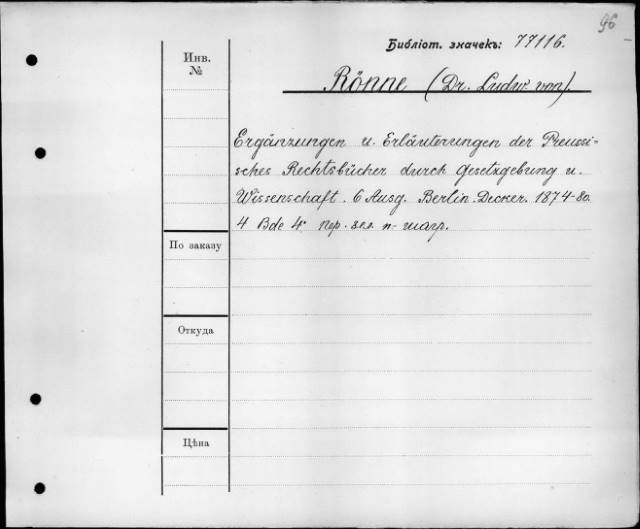 96
Библіот. значекъ: 77116.
Инв.
№
Rönne (Dr. Ludw. von).
Ergänzungen u. Erläuterungen der Preussi-
sches Rechtsbücher durch Gesetzgebung u.
Wissenschaft. 6 Ausg. Berlin. Decker. 1874-80.
4 Bde 4° пер. зел. п-шагр.
По заказу
Откуда
Цѣна